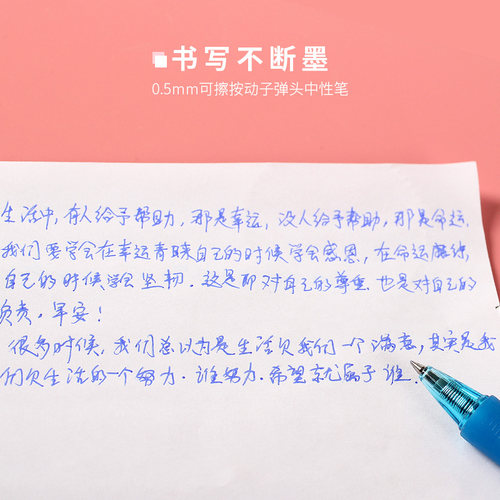 书写不断墨
0.5mm可擦按动子弹头中性笔
生活中,有人给予帮助,那是幸运,没人给予帮助,那是命运.
我们要学会在幸运青睐自己的时候学会感恩,在命运磨练
自己的时候学会坚韧.这是即对自己的尊重也是对自己的
负责,早安!
很多时候,我们总以为是生活欠我们一个满意,其实是我
们欠生活的一个努力.谁努力.希望就属于谁.